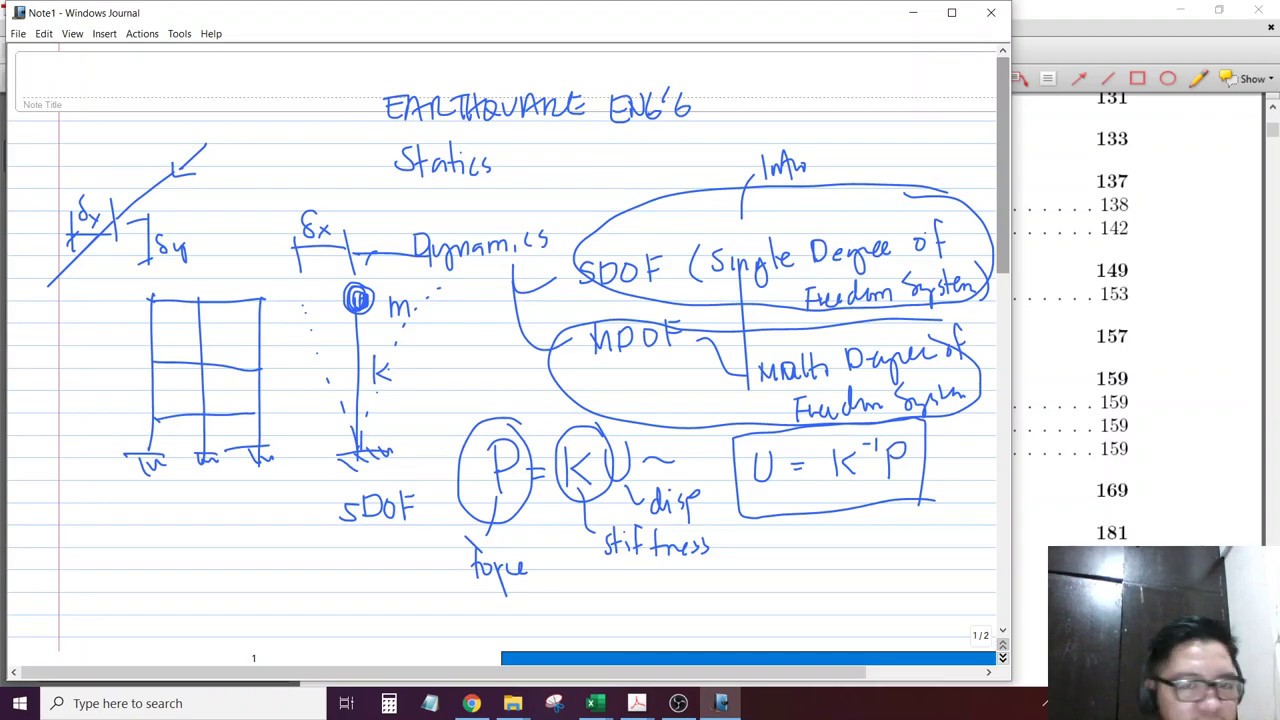 Note1 - Windows Journal
File Edit View Insert Actions Tools Help
Note Title
EARTHQUAKE ENG'G
Statics
Intro
δx
δy
δx
Dynamics
SDOF (Single Degree of
Freedom System)
m
MDOF
Multi Degree of
Freedom System
k
P = K U ~
U = K⁻¹P
disp
SDOF
stiffness
force
1/2
1
Show
131
133
137
. . . . . 138
. . . . . 142
149
. . . . . 153
157
159
. . . . . 159
. . . . . 159
. . . . . 159
169
181
Type here to search